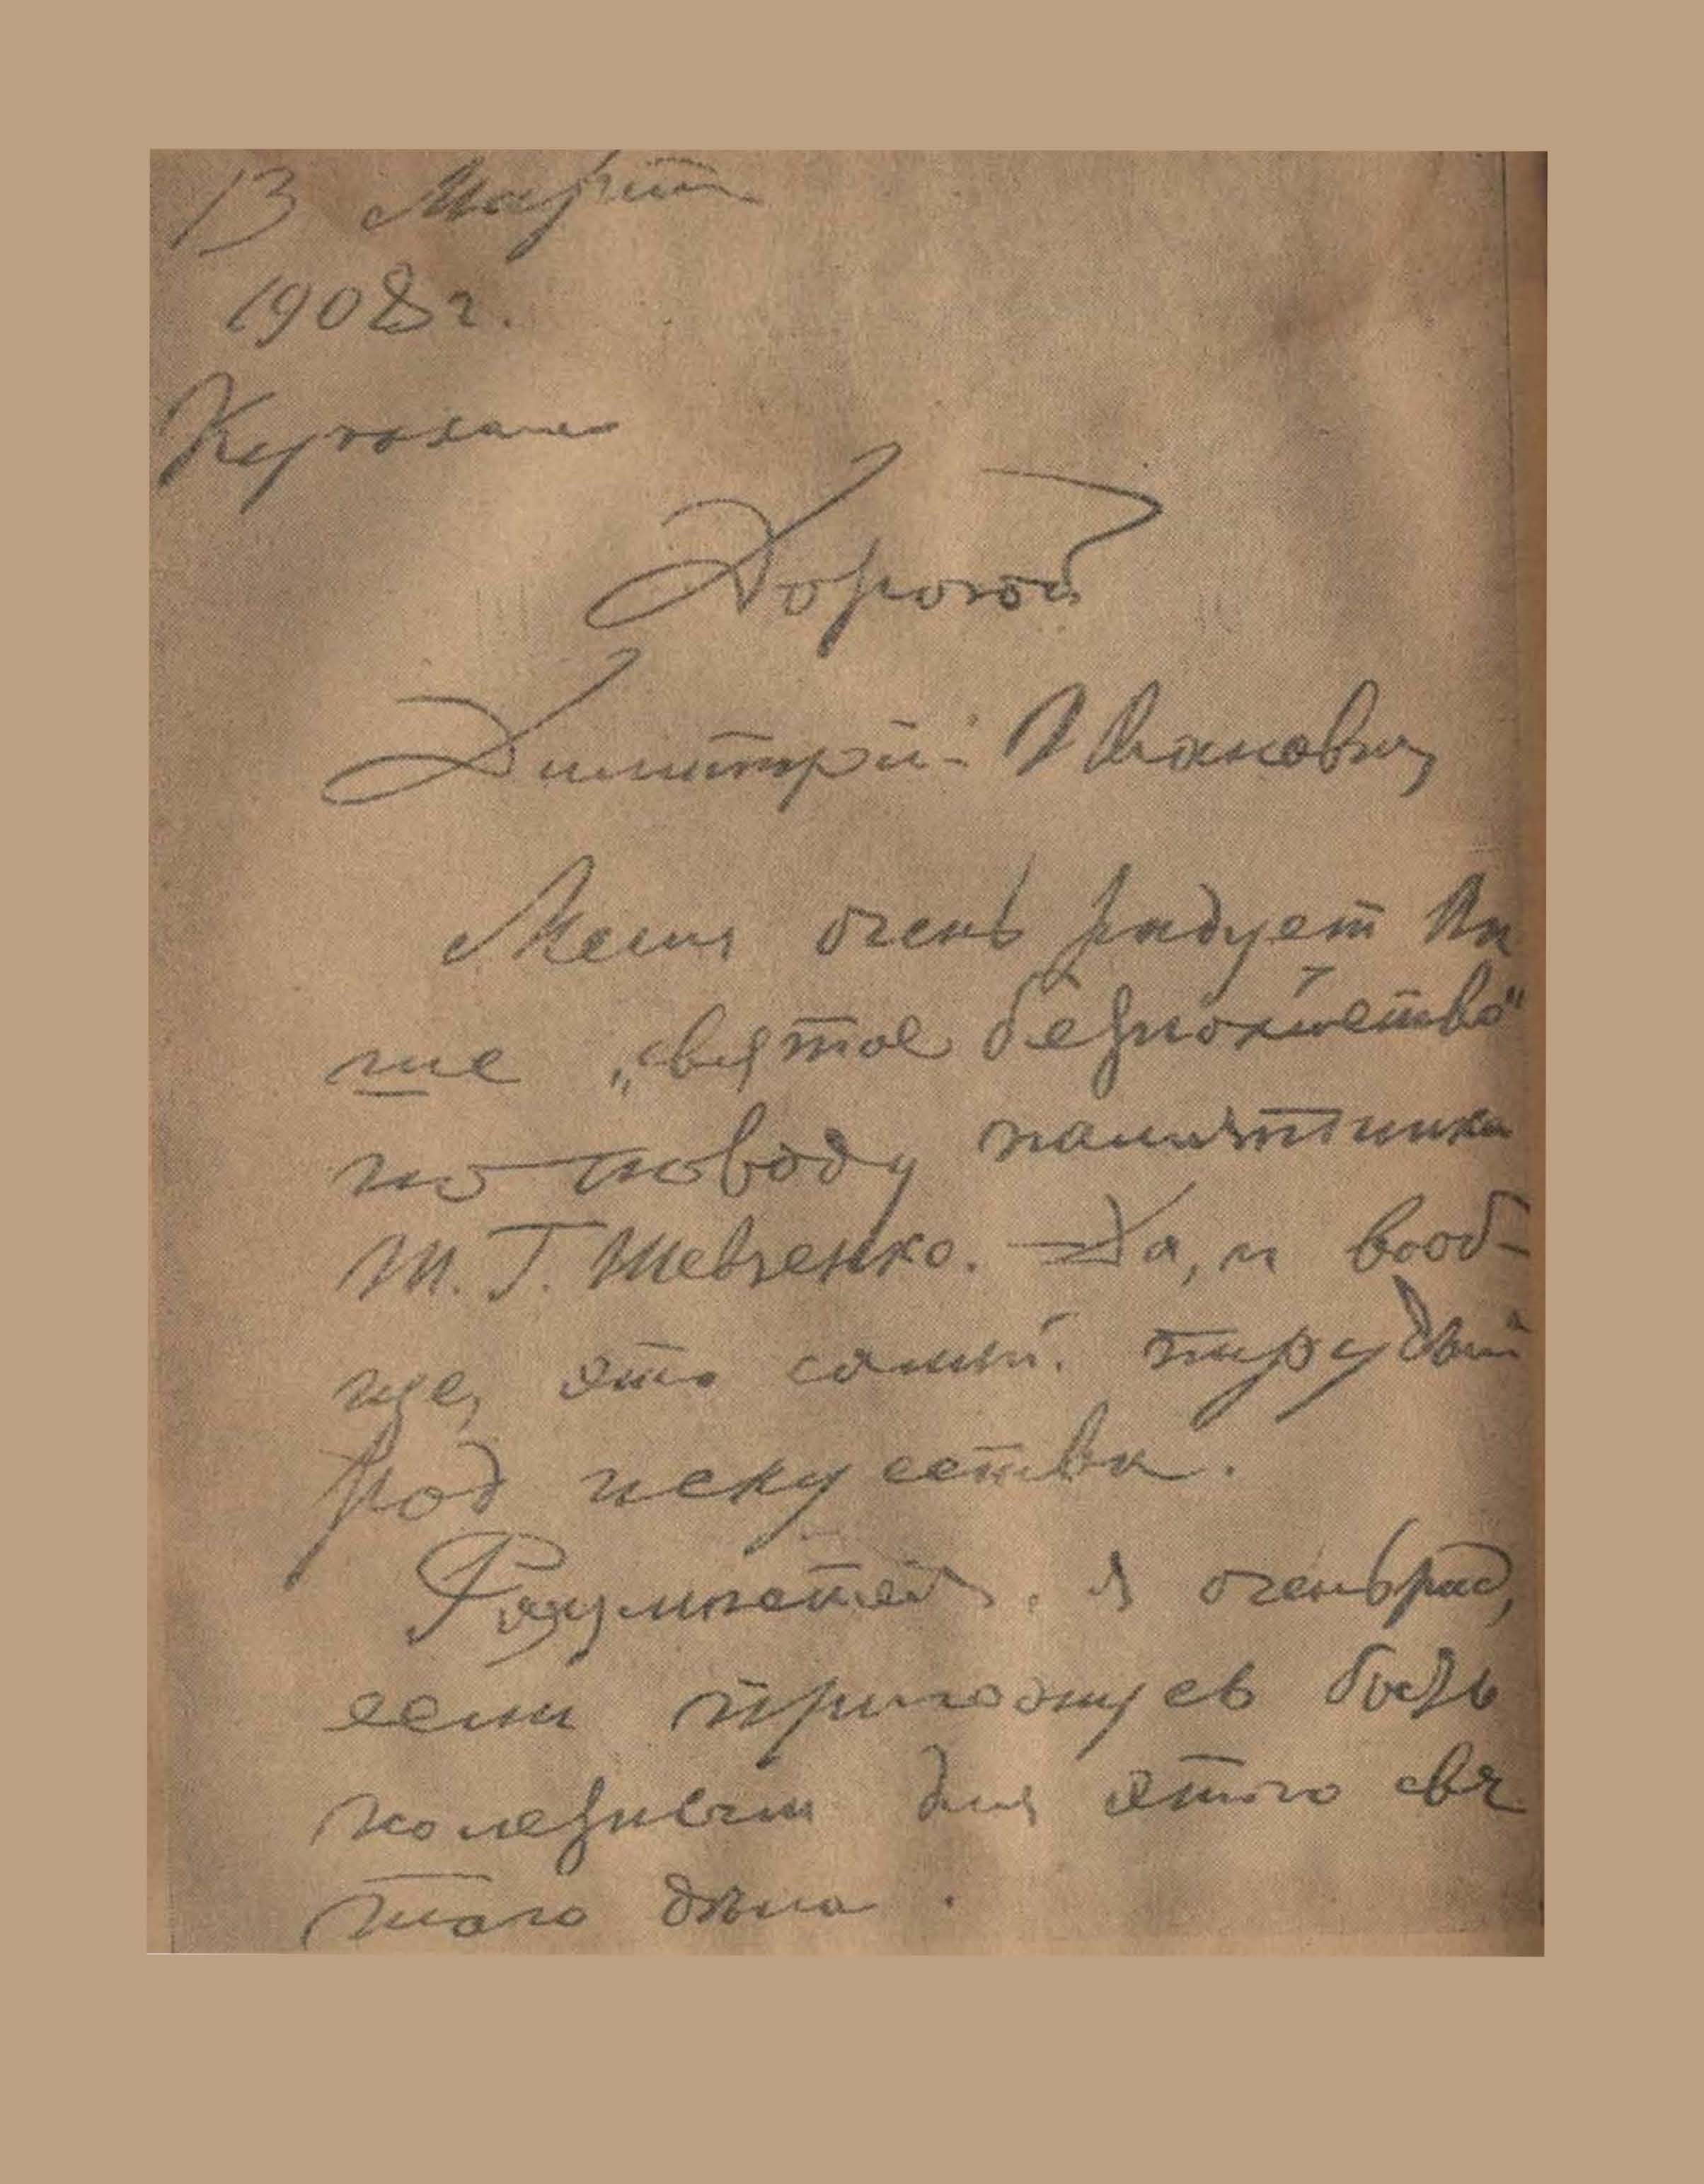 13 Март
1908 г.
Куоккала
Дорогой
Димитрий Иванович
Меня очень радует Ва
ше „святое безпокойство“
по поводу памятника
Т. Г. Шевченко. Да, и вооб-
ще, это самый трудный
род искусства.
Разумеется, я очень рад,
если пригожусь быть
полезным для этого свя
того дѣла.